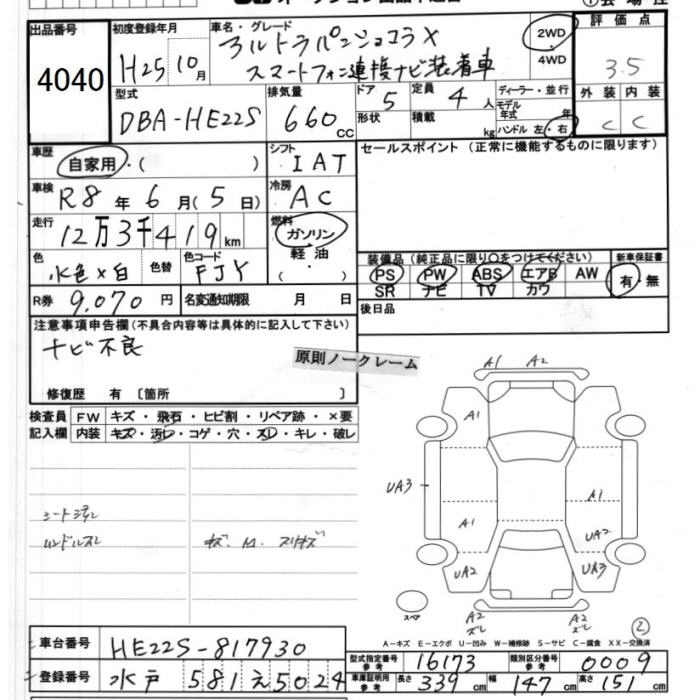 ①会場
出品番号
4040
初度登録年月
H25 10月
車名・グレード
アルトラパンショコラX
スマートフォン連携ナビ装着車
2WD
4WD
評価点
3.5
外装 内装
C C
型式
DBA-HE22S
排気量
660 CC
ドア
5
形状
定員
4人
積載
kg
ディーラー・並行
モデル年式 年
ハンドル 左・右
車歴
自家用・( )
シフト
IAT
セールスポイント (正常に機能するものに限ります)
車検
R8年6月(5日)
冷房
AC
走行
12万3千419km
燃料
ガソリン
・
軽油
・
( )
色
水色×白
色替
色コード
FJY
装備品(純正品に限り○をつけてください)
PS PW ABS エアB AW
SR ナビ TV カワ
新車保証書
有・無
R券 9,070円
名変通知期限 月 日
後日品
注意事項申告欄(不具合内容等は具体的に記入して下さい)
ナビ不良
原則ノークレーム
修復歴 有〔箇所 〕
検査員
記入欄
FW キズ・飛石・ヒビ割・リペア跡・×要
内装 キズ・汚レ・コゲ・穴・スレ・キレ・破レ
シート汚レ
ハンドルスレ
キズ、M、スリキズ
A1 A2
A1
UA3
A1
A1
UA2
UA2
UA3
スペア
A2
スレ
A2
スレ
②
A-キズ E-エクボ U-凹み W-補修跡 S-サビ C-腐食 XX-交換済
車台番号
HE22S-817930
登録番号
水戸 581 え 5024
型式指定番号
参考
16173
類別区分番号
参考
0009
車庫証明用
参考
長さ 339cm 幅 147cm 高さ 151cm